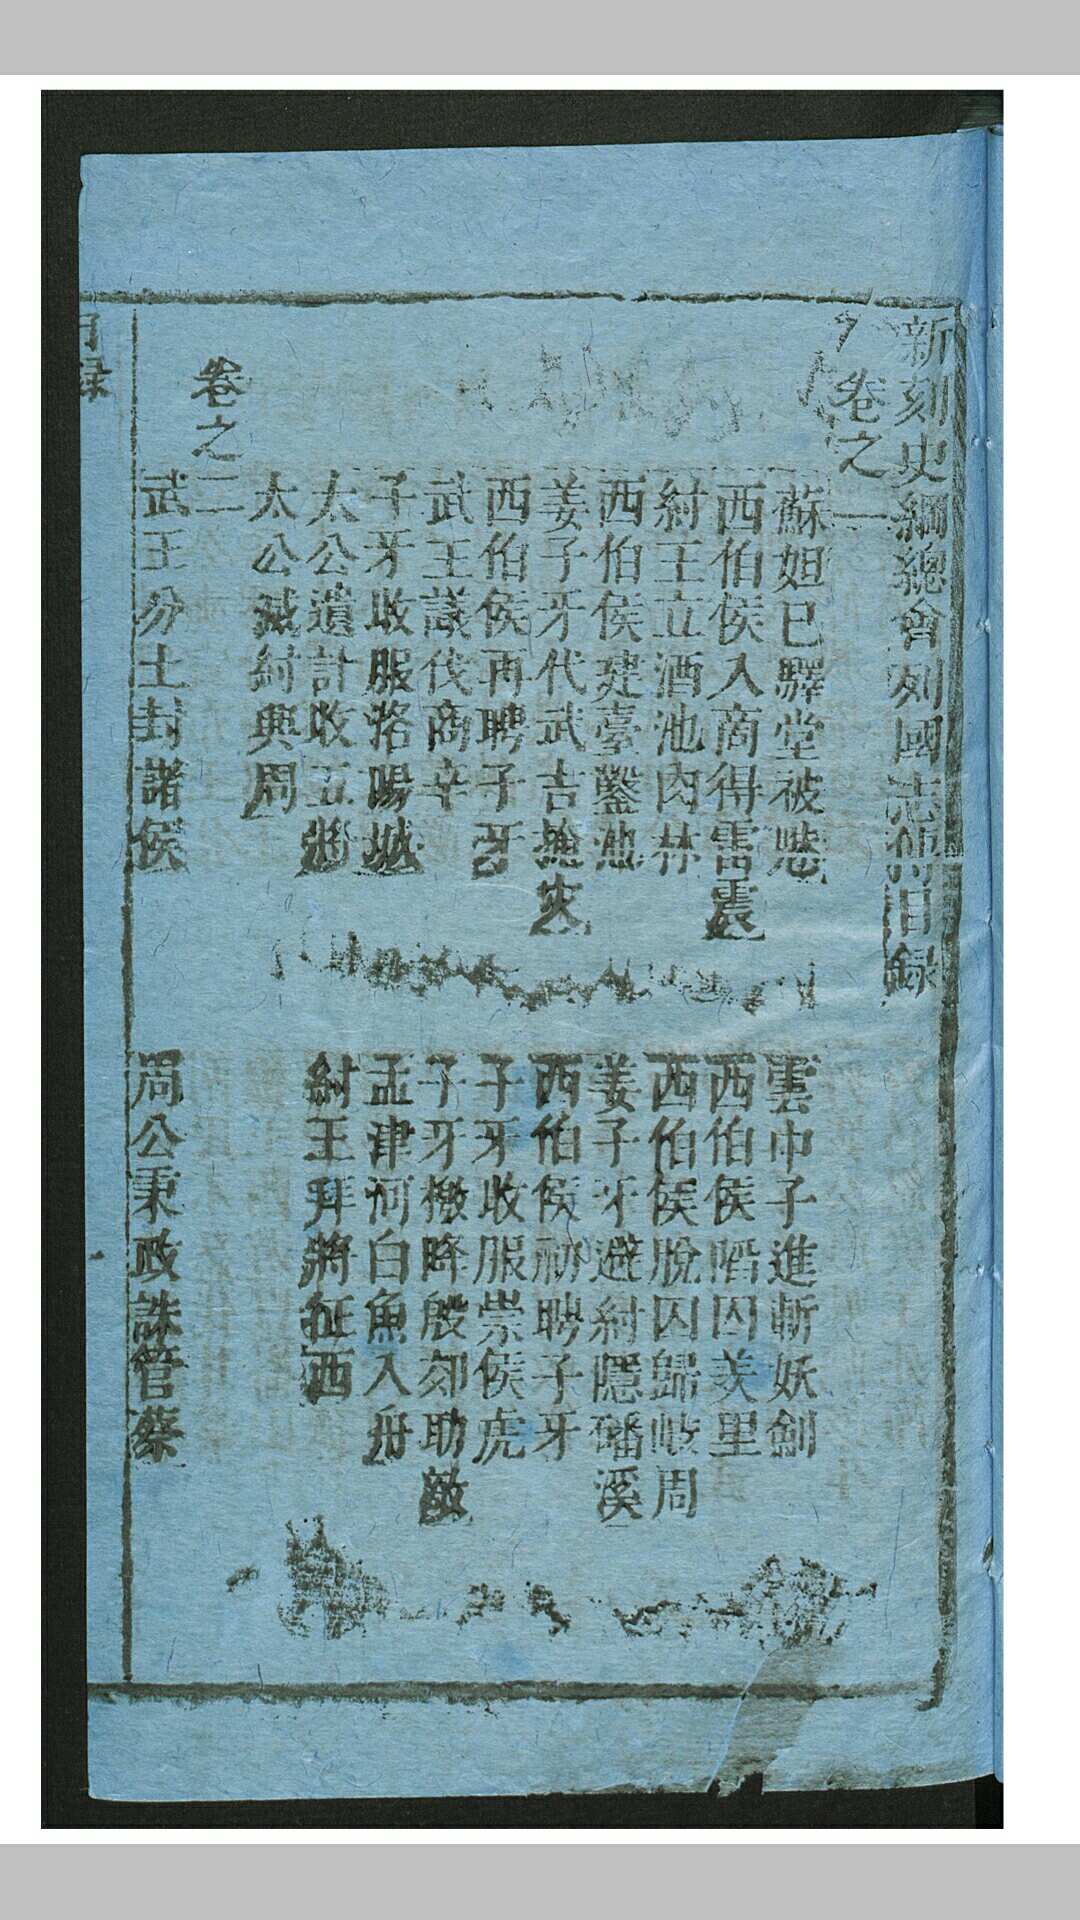 新刻史綱總會列國志傳目録
卷之一
蘇妲已驛堂被魅
雲中子進斬妖劍
西伯侯入商得雷震
西伯侯陷囚羑里
紂王立酒池肉林
西伯侯脫囚歸岐周
西伯侯建臺鑿池
姜子牙避紂隱磻溪
姜子牙代武吉掩灾
西伯侯初聘子牙
西伯侯再聘子牙
子牙收服崇侯虎
武王議伐商辛
子牙檄降殷郊助敵
子牙收服洛陽城
孟津河白魚入舟
太公遺計收五將
紂王拜將征西
太公滅紂興周
卷之二
武王分土封諸侯
周公秉政誅管蔡
目録